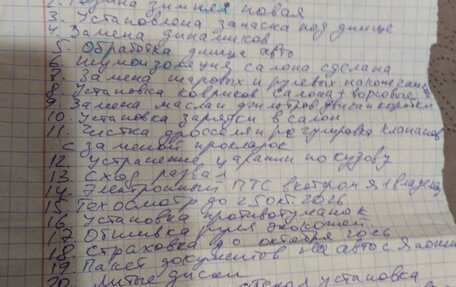 2. Резина зимняя новая
3. Установлена запаска под днище
4. Замена динамиков
5. Обработка днища авто
6. Шумоизоляция салона сделана
7. Замена шаровых и рулевых наконечник
8. Установка ковриков (Салона + ворсовые
9. Замена масла и фильтров двиг и коробки
10. Установка зарядки в салон
11. Чистка дросселя и регулировка клапанов
с заменой прокладок
12. Устранение царапин по кузову
13. Сход развал
14. Электронный ПТС в котором я 1 владелец
15. Техосмотр до 25 окт. 2026
16. Установка противотуманок
17. Обшивка руля экокожей
18. Страховка до октября 2026
19. Пакет документов на авто с
20. Литые диски
установка